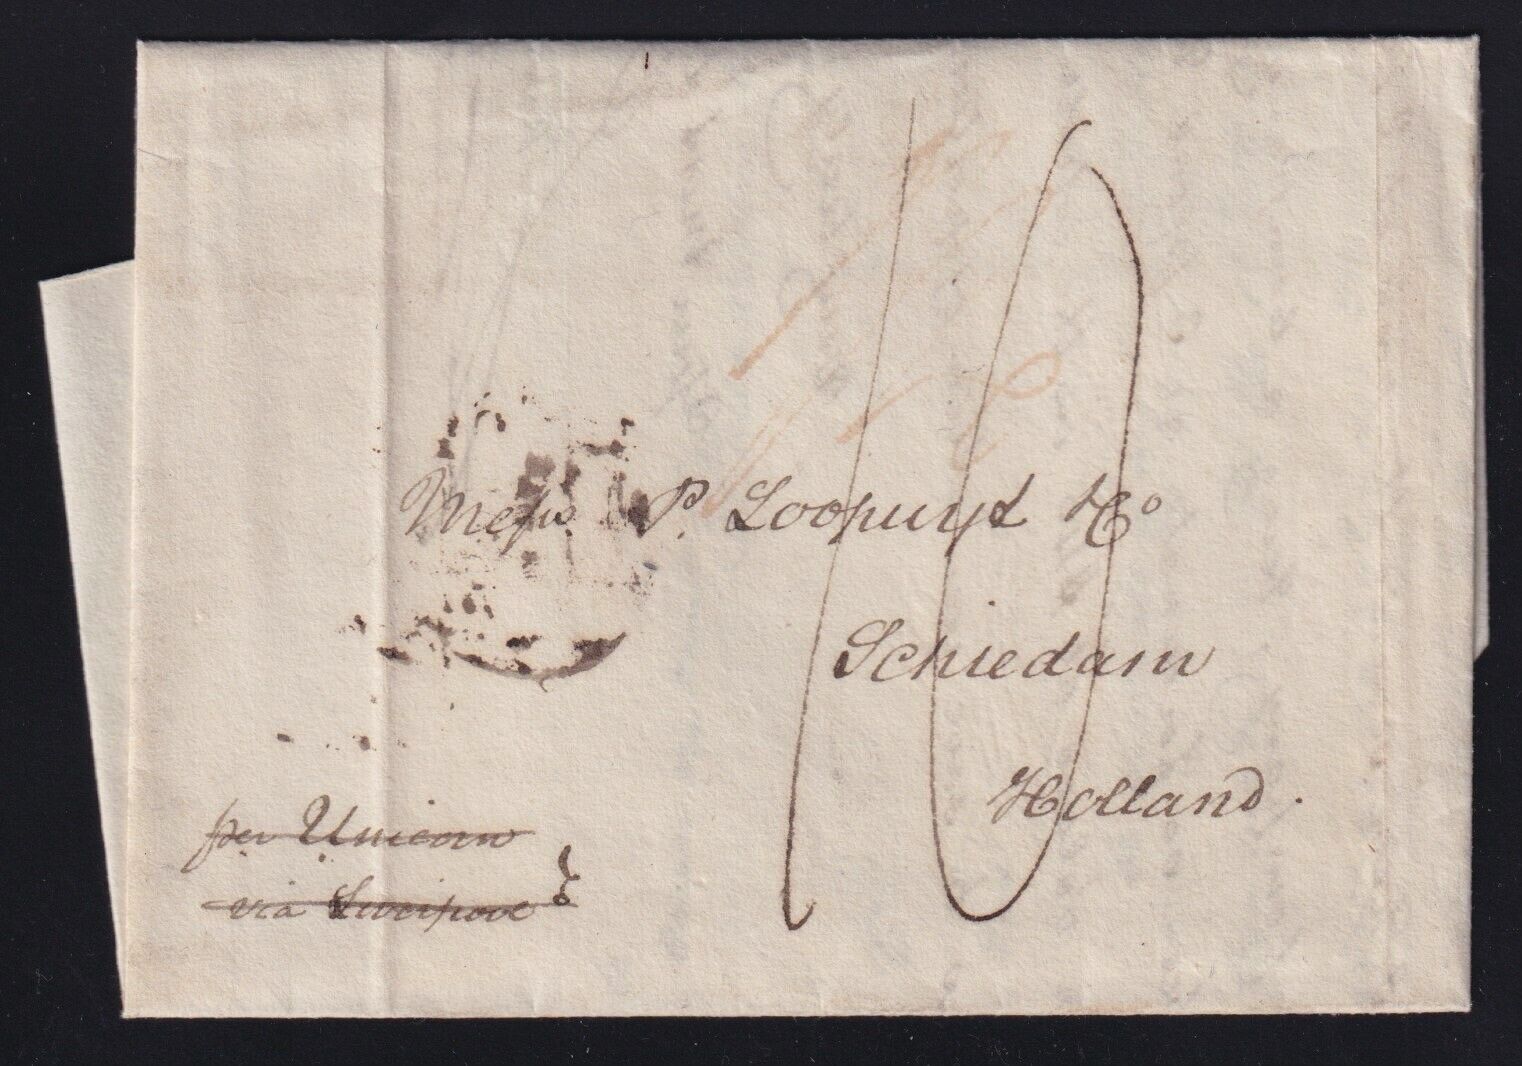 10
Mess P. Loopuyt & Co
Schiedam
Holland.
per Unicorn
via Liverpool